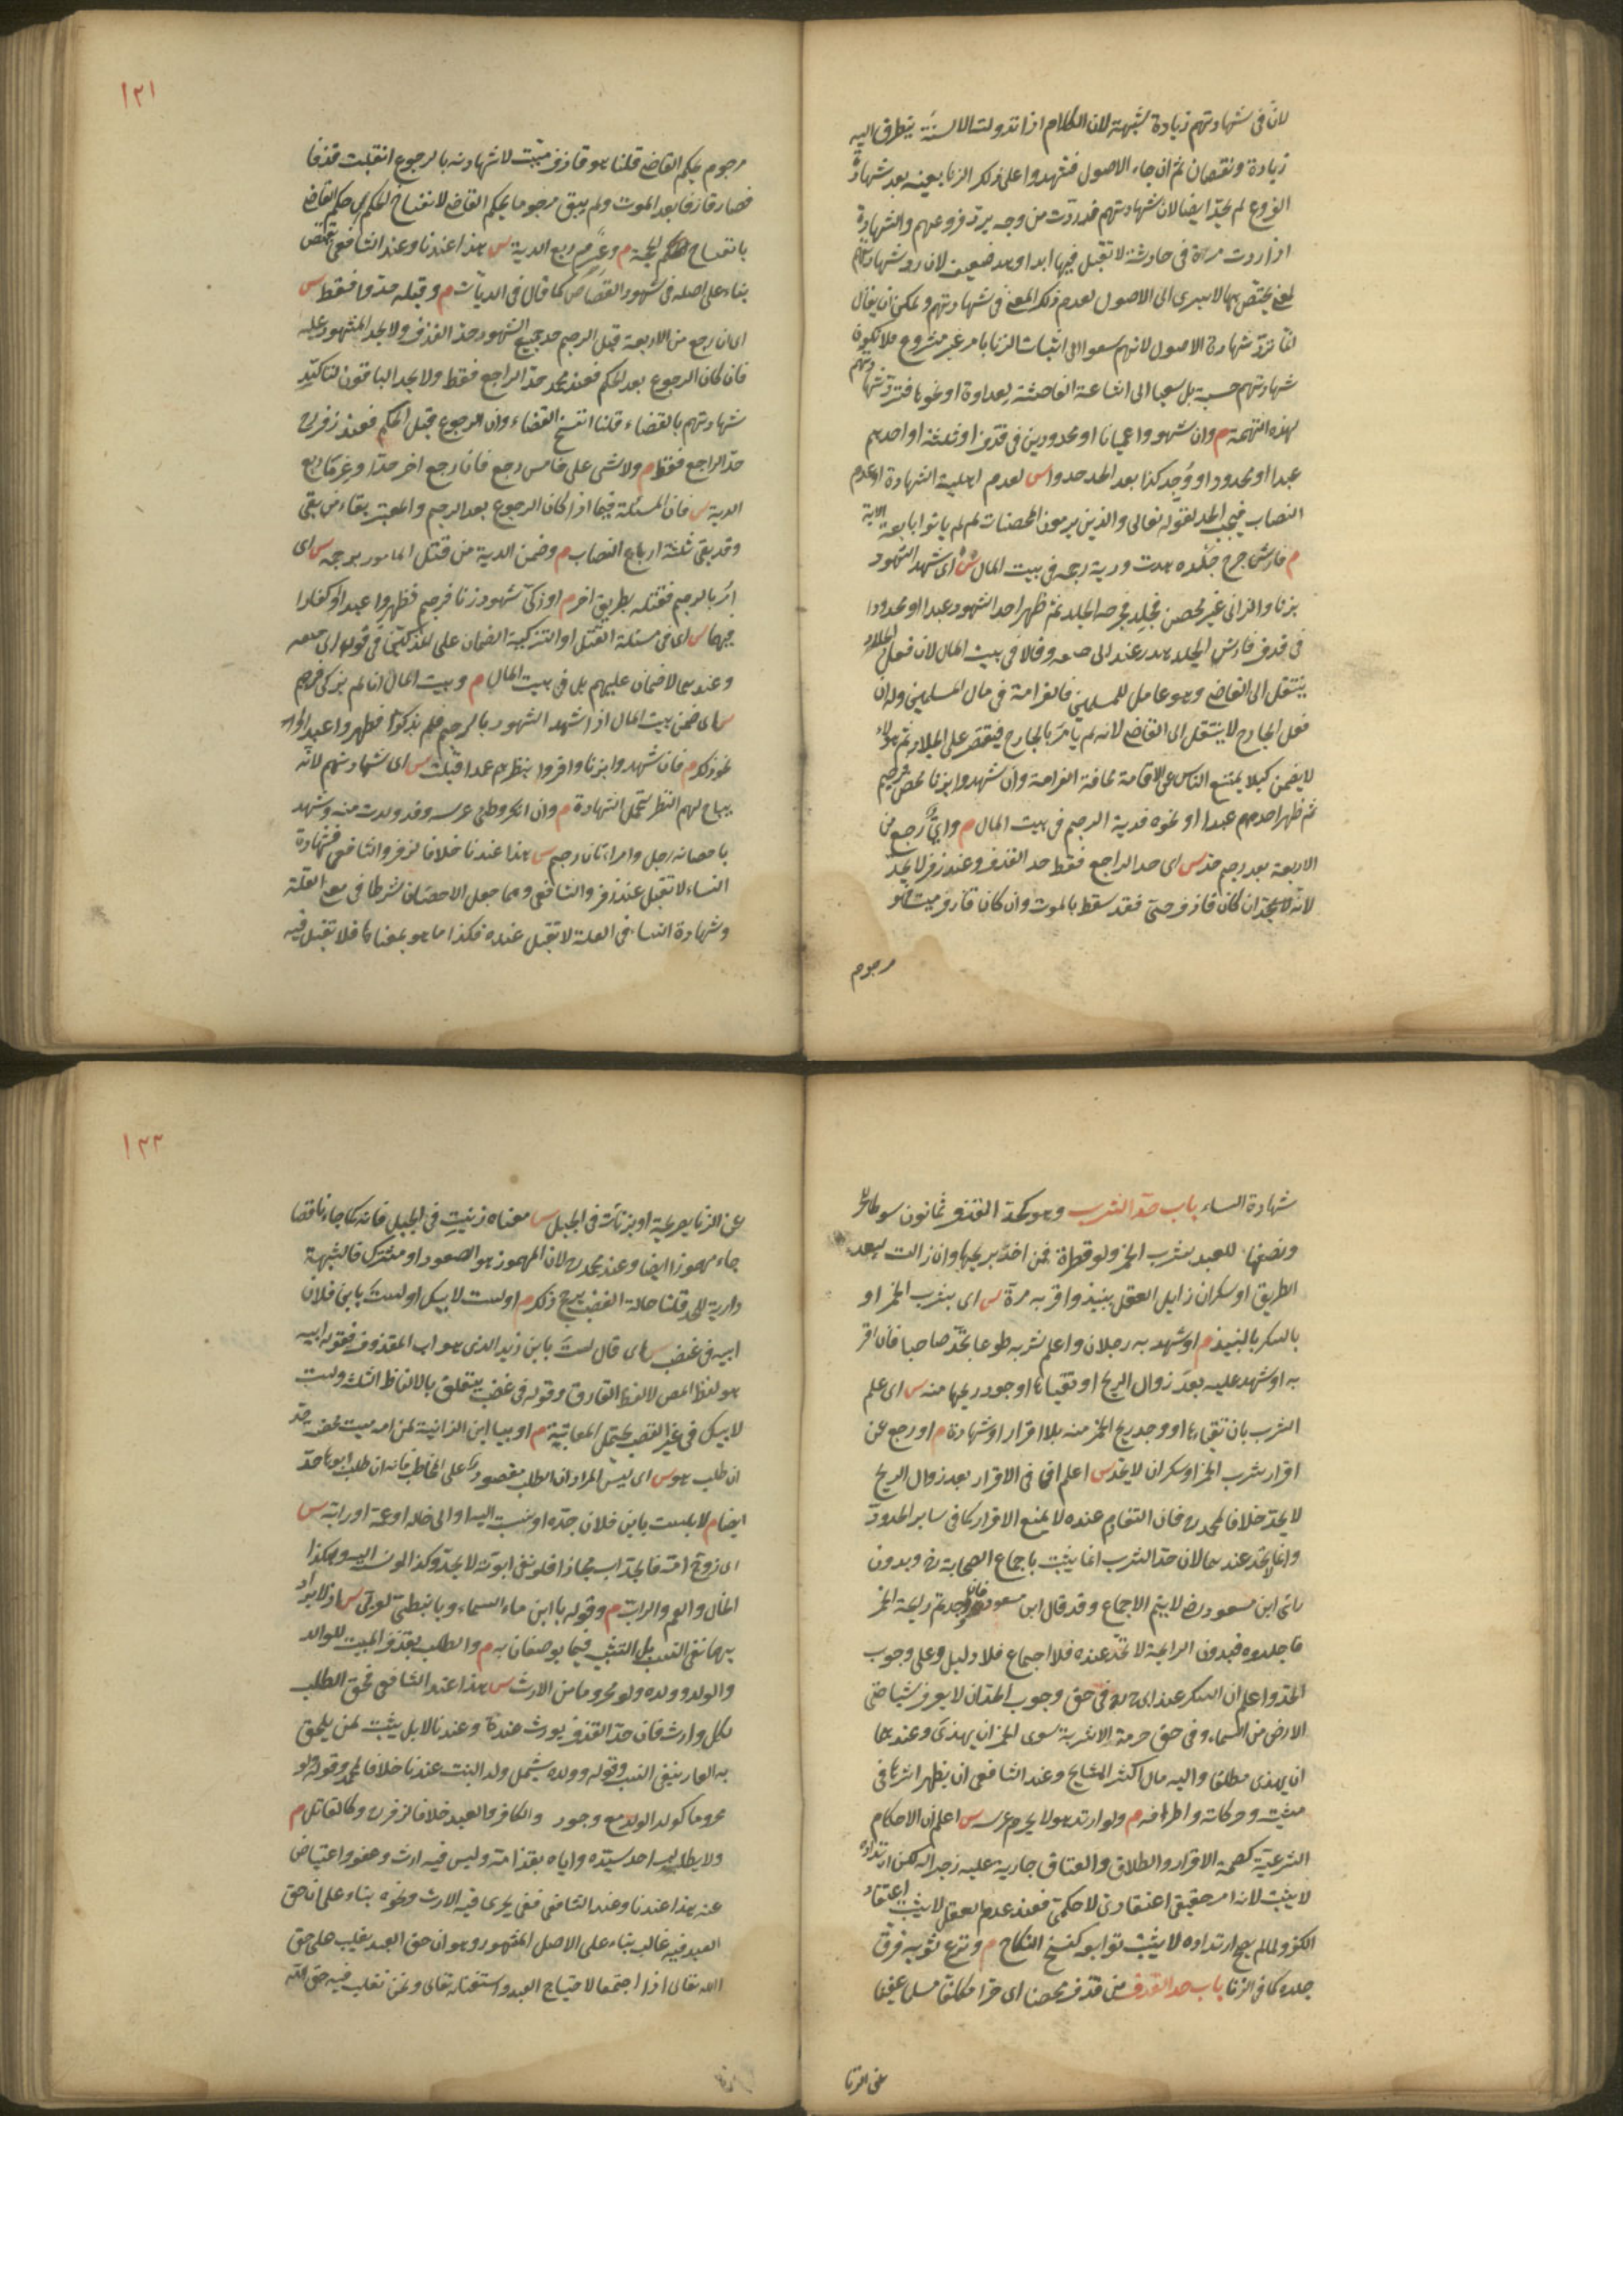 لان فى شهادتهم زيادة شبهة لان الكلام اذا تدولت الالسنة يتطرق اليه
زيادة ونقصان ثم ان جاء الاصول فشهدوا على ذلك الزنا بعينه بعد شهادة
الفروع لم يحد ايضا لان شهادتهم قد ردت من وجه برد فروعهم والشهادة
اذا ردت مرة فى حادثة لا تقبل فيها ابدا وهو ضعيف لان رد شهادتهم
لمعنى يختص بها لا يسرى الى الاصول لعدم ذلك المعنى فى شهادتهم ويمكن ان يقال
انما ترد شهادة الاصول لانهم سعوا الى اثبات الزنا بامر غير مشروع فلا تكون
شهادتهم حسبة بل سعيا الى اشاعة الفاحشة بعداوة او نحوها فترد شهادتهم
بهذه التهمة م وان شهدوا عميانا او محدودين فى قذف او ثلثة او احدهم
عبد او محدود او وجد كذا بعد الحد حدوا س لعدم اهلية الشهادة او عدم
النصاب فيجب الحد لقوله تعالى والذين يرمون المحصنات ثم لم ياتوا باربعة الاية
م وارش جرح جلده هدر ودية رجمه فى بيت المال س اى شهد الشهود
بزنا والزانى غير محصن فجلد فجرحه الجلد ثم ظهر احد الشهود عبدا او محدودا
فى قذف فارش الجلد هدر عند ابى حنيفة وقالا فى بيت المال لان فعل الجلاد
ينتقل الى القاضى وهو عامل للمسلمين فالغرامة فى مال المسلمين وله ان
فعل الجارح لا ينتقل الى القاضى لانه لم يامر بالجارح فيقتصر على الجلاد ثم هو
لا يضمن كيلا يمتنع الناس عن الاقامة مخافة الغرامة وان شهدوا بزنا محصن فرجم
ثم ظهر احدهم عبدا او نحوه فدية الرجم فى بيت المال م واى رجع من
الاربعة بعد رجم حد س اى حد الراجع فقط حد القذف وعند زفر لا يحد
لانه لا يحد ان كان قاذف حى فقد سقط بالموت وان كان قاذف ميت فهو
مرجوم
١٢١
مرجوم بحكم القاضى قلنا هو قاذف ميت لان شهادته بالرجوع انقلبت قذفا
فصار قاذفا بعد الموت ولم يبق مرجوما بحكم القاضى لانفساخ الحكم اى حكم القاضى
بانفساخ الحجة م وغرم ربع الدية س هذا عندنا وعند الشافعى يقتص
بناء على اصله فى شهود القصاص كما قال فى الديات م وقبله حدوا فقط س
اى ان رجع من الاربعة قبل الرجم حد جميع الشهود حد القذف ولا يحد المشهود عليه
فان كان الرجوع بعد الحكم فعند محمد حد الراجع فقط ولا يحد الباقون لتاكيد
شهادتهم بالقضاء قلنا انفسخ القضاء وان الرجوع قبل الحكم فعند زفر
حد الراجع فقط م ولا شى على خامس رجع فان رجع اخر حدا وغرما ربع
الدية س فان المسئلة فيما اذا كان الرجوع بعد الرجم والمعتبر بقاء من بقى
وقد بقى ثلثة ارباع النصاب م وضمن الدية من قتل المامور برجمه س اى
امر بالرجم فقتله بطريق اخر م او زكى شهود زنا فرجم فظهروا عبيدا او كفارا
فيهما س اى فى مسئلة القتل او التزكية الضمان على المذكيين فى قول ابى حنيفة
وعندهما لا ضمان عليهم بل فى بيت المال م وبيت المال ان لم يزكى فرجم
س اى ضمن بيت المال اذا شهد الشهود بالرجم فلم يزكوا فظهروا عبيدا او
نحو ذلك م فان شهدوا بزنا واقروا بنظرهم عمدا قبلت س اى شهادتهم لانه
يباح لهم النظر لتحمل الشهادة م وان انكر وطى عرسه وقد ولدت منه وشهد
باحصانه رجل وامراتان رجم س هذا عندنا خلافا لزفر والشافعى فشهادة
النساء لا تقبل عند زفر والشافعى وهما جعلا الاحصان شرطا فى معنى العلة
وشهادة النساء فى العلة لا تقبل عنده فكذا ما هو بمعناها فلا تقبل فيه
شهادة النساء باب حد الشرب وهو كحد القذف ثمانون سوطا للحر
ونصفها للعبد بشرب الخمر ولو قطرة فمن اخذ بريحها وان زالت لبعد
الطريق او سكران زايل العقل بنبيذ واقر به مرة س اى بشرب الخمر او
بالسكر بالنبيذ م او شهد به رجلان واعلم شربه طوعا يحد صاحيا فان اقر
به او شهد عليه بعد زوال الريح او تقياها او وجد ريحها منه س اى علم
الشرب بان تقياها او وجد ريح الخمر منه بلا اقرار او شهادة م او رجع عن
اقرار بشرب الخمر او سكران لا يحد س اعلم ان فى الاقرار بعد زوال الريح
لا يحد خلافا لمحمد فان التقادم عنده لا يمنع الاقرار كما فى ساير الحدود
وانما لا يحد عندهما لان حد الشرب انما يثبت باجماع الصحابة وبدون
راى ابن مسعود لا يتم الاجماع وقد قال ابن مسعود فان وجدتم رايحة الخمر
فاجلدوه فبدون الرايحة لا يحد عنده فلا اجماع فلا دليل وعلى وجوب
الحد واعلم ان السكر عند ابى ح فى حق وجوب الحد ان لا يعرف شيا حتى
الارض من السماء وفى حق حرمة الاشربة سوى الخمر ان يهذى وعندهما
ان يهذى مطلقا واليه مال اكثر المشايخ وعند الشافعى ان يظهر اثرها فى
مشيته وحركاته واطرافه م ولو ارتد هو لا يحرم عرسه س اعلم ان الاحكام
الشرعية كصحة الاقرار والطلاق والعتاق جارية عليه زجرا له لكن ارتداده
لا يثبت لانه امر حقيقى اعتقادى لا حكمى فعند عدم العقل لا يثبت اعتقاد
الكفر ولما لم يصح ارتداده لا يثبت توابعه كفسخ النكاح م ونزع ثوبه وفرق
جلده كما فى الزنا باب حد القذف من قذف محصنا اى حرا مكلفا مسلما عفيفا
عن الزنا
١٢٢
عن الزنا بصريحه او بزنات فى الجبل س معناه زنيت فى الجبل فانه كما جاء ناقصا
جاء مهموزا ايضا وعند محمد لان المهموز هو الصعود او مشترك فالشبهة
دارية للحد قلنا حالة الغضب يرجح ذلك م او لست لابيك او لست بابن فلان
ابيه فى غضب س اى قال لست بابن زيد الذى هو اب المقذوف فقوله ابيه
هو لفظ المص لا لفظ القاذف وقوله فى غضب يتعلق بالالفاظ الثلثة ولست
لابيك فى غير الغضب يحتمل المعاتبة م او بيا ابن الزانية لمن امه ميت محصنة حد
ان طلب هو س اى ليس المراد ان الطلب مقصور على المخاطب فانه ان طلب ابوها حد
ايضا م لا بلست بابن فلان جده او بنسبته اليه او الى خاله او عمه او رابه س
اى زوج امه فالجد اب مجازا فلو نفى ابوته لا يحد وكذا لو نسب اليه وكذا
الخال والعم والراب م وقوله يا ابن ماء السماء ويا نبطى لعربى س اذ لا يراد
بهما نفى النسب بل التشبيه فيما يوصفان به م والطلب بقذف الميت للوالد
والولد وولده ولو محروما من الارث س هذا عند الشافعى فحق الطلب
لكل وارث فان حد القذف يورث عنده وعندنا لا بل يثبت لمن يلحق
به العار بنفى النسب وقوله وولده يشمل ولد البنت عندنا خلافا لمحمد وقوله ولو
محروما كولد الولد مع وجود والكافر والعبد خلافا لزفر وكالقاتل م
ولا يطالب احد سيده واباه بقذف امه وليس فيه ارث وعفو واعتياض
عنه هذا عندنا وعند الشافعى ففى يجرى فيه الارث ونحوه بناء على ان حق
العبد فيه غالب بناء على الاصل المشهور وهو ان حق العبد يغلب على حق
الله تعالى اذا اجتمعا لاحتياج العبد واستغنائه تعالى ونحن نغلب فيه حق الله